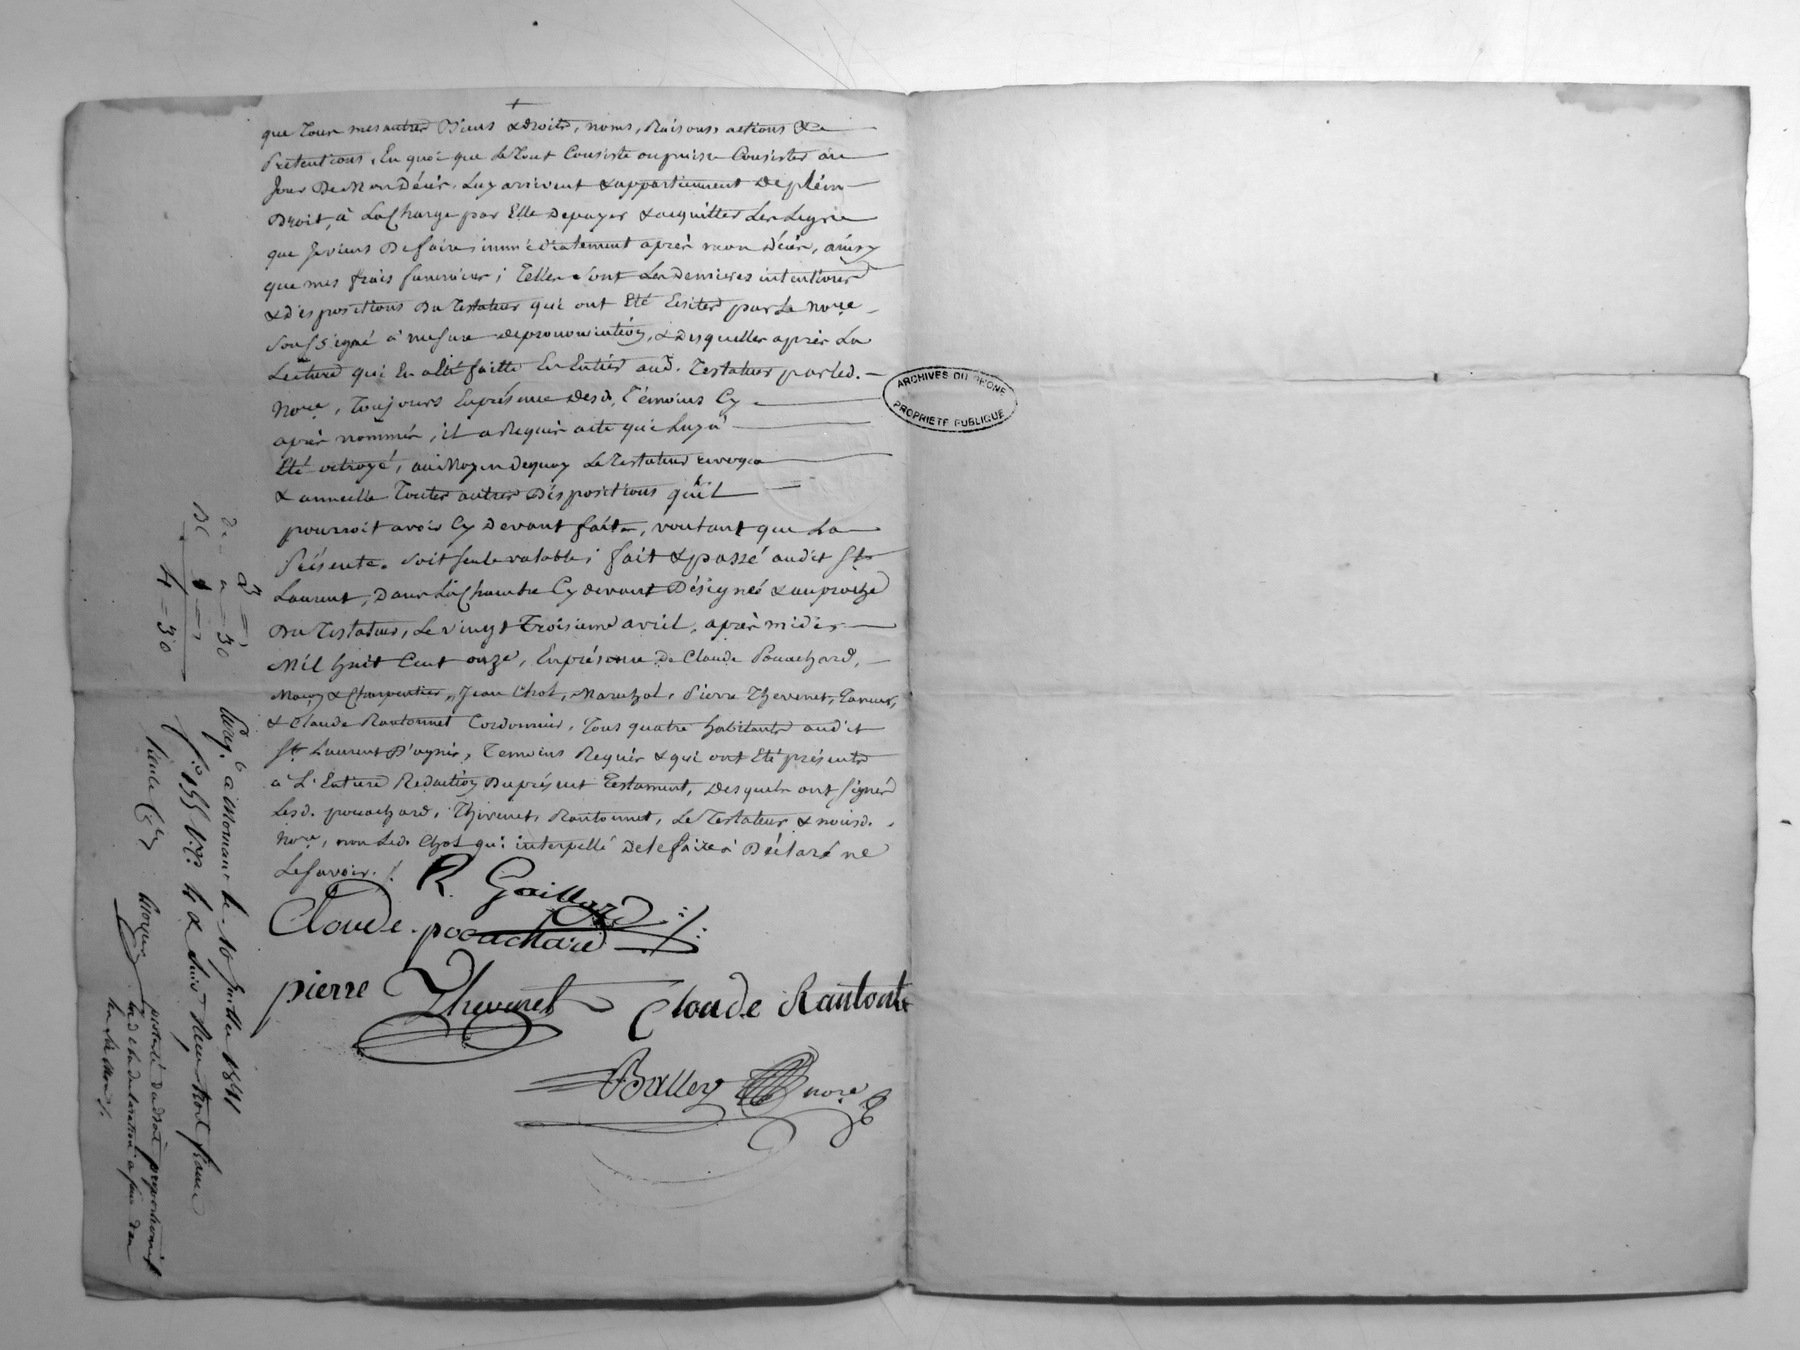 que Tour mes autres Biens & droits, noms, Raisons actions &
Prétentions, En quoi que le Tout Consiste ou puisse Consister au
Jour De Mon Décès, Luy arrivent & appartiennent De plein
Droit, à La Charge par Elle De payer & acquitter Les Legs
que Je viens De faire immédiatement après mon Décès, ainsy
que mes frais funéraires ; Telles sont Les Dernieres intentions
& dispositions Du Testateur qui ont Eté Ecrites par Le nore
soussigné à mesure de prononciation, & desquelles après La
Lecture qui En a Eté faitte En Entier aud. Testateur par led.
Nore, Toujours En présence Desd. Témoins Cy
après nommés, il a Requis acte qui Luy a
Eté octroyé, au Moyen de quoy Le Testateur revoque
& annulle Toutes autres Dispositions qu'il
pourroit avoir Cy Devant faites, voulant que La
Présente soit seule valable ; fait & passé audit St
Laurent, Dans La Chambre Cy devant Désignée & au proche
Du Testateur, Le vingt Troisieme avril, après midi,
Mil huit Cent onze, En présence De Claude Pouachard,
Maçon & Charpentier, Jean Chol, Marechal, Pierre Thevenet,
& Claude Rantonnet Cordonnier, Tous quatre habitants audit
St Laurent D'agnis, Temoins Requis & qui ont Eté présents
à L'Entiere Redaction Du présent Testament, Desquels ont signé
Lesd. pouachard, Thevenet, Rantonnet, Le Testateur & nousd.
Nore, non Led. Chol qui interpellé De le faire à Déclaré ne
Le savoir.
R. Gaillard
Claude pouachard
pierre Thevenet Claude Rantont
Balley nore
ARCHIVES DU RHONE
PROPRIETE PUBLIQUE
3 = 30
4 = 30
Enreg. à Mornant le 10 Juillet 1811
fo 155 Vo